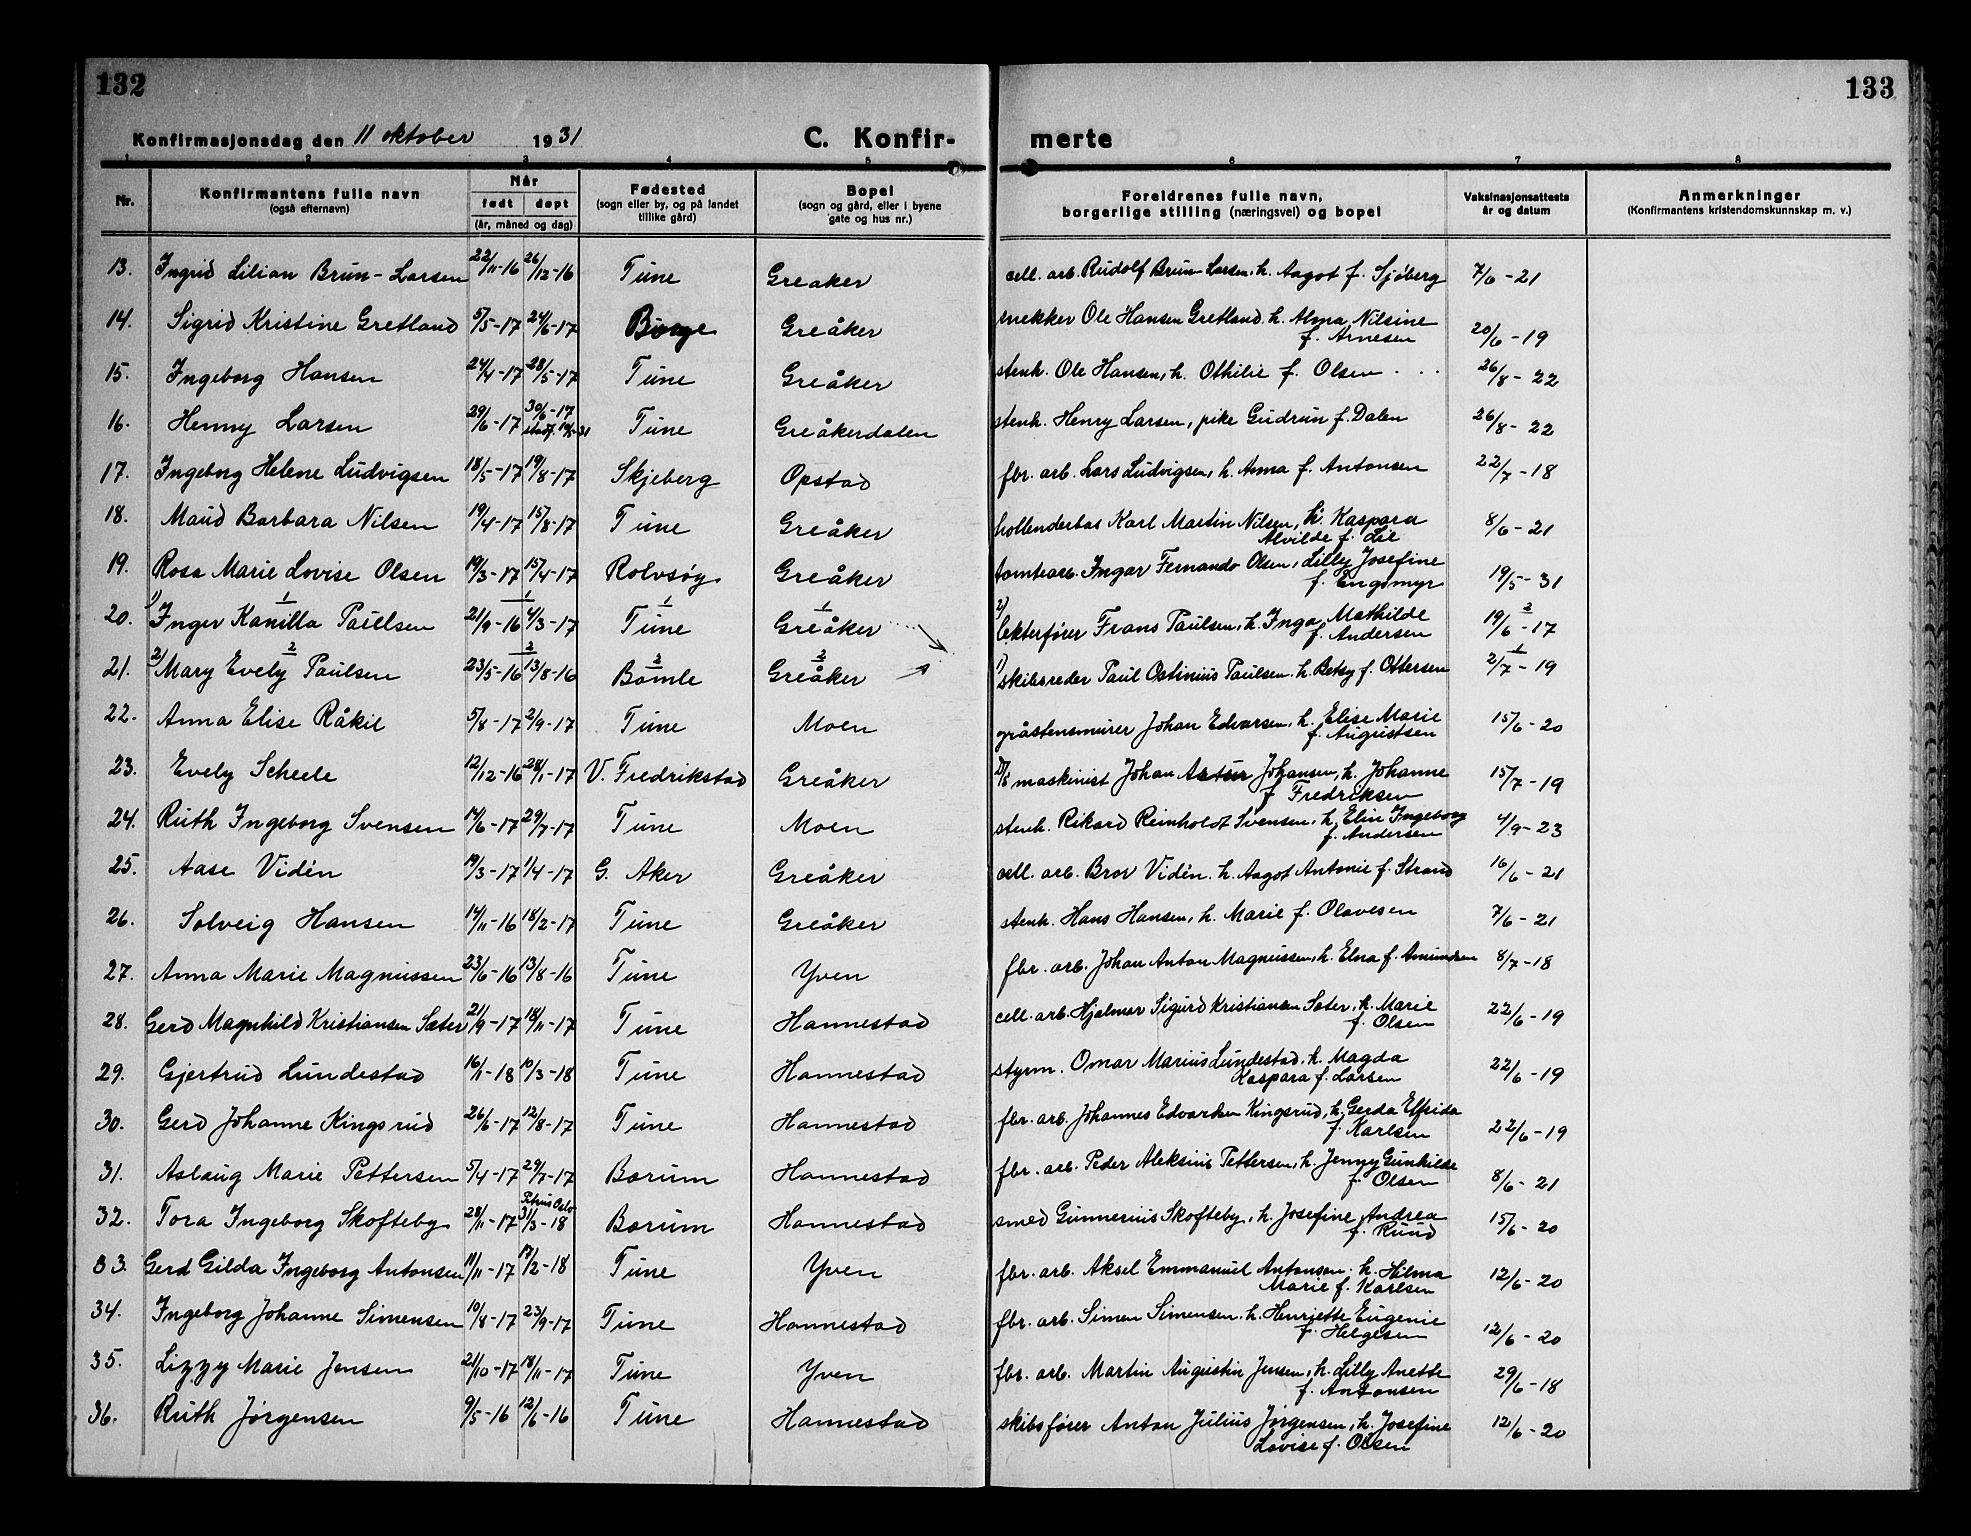 132
133
Konfirmasjonsdag den 11 oktober 1931
C. Konfir-
merte
1 2 3 4 5 6 7 8
Nr.
Konfirmantens fulle navn
(også efternavn)
Når
født døpt
(år, måned og dag)
Fødested
(sogn eller by, og på landet
tillike gård)
Bopel
(sogn og gård, eller i byene
gate og hus nr.)
Foreldrenes fulle navn,
borgerlige stilling (næringsvei) og bopel
Vaksinasjonsattests
år og datum
Anmerkninger
(Konfirmantens kristendomskunnskap m. v.)
13. Ingrid Lilian Brun-Larsen 22/11-16 26/12-16 Tune Greaker cell. arb. Rudolf Brun Larsen, h. Aagot f. Sjøberg 7/6-21
14. Sigrid Kristine Gretland 5/5-17 24/6-17 Borge Greåker snekker Ole Hansen Gretland. h. Alma Nilsine
f. Arnesen 20/6-19
15. Ingeborg Hansen 24/4-17 28/5-17 Tune Greåker stenh. Ole Hansen, h. Othilie f. Olsen 26/8-22
16. Henny Larsen 29/6-17 30/6-17 Tune Greåkerdalen stenh. Henry Larsen, pike Gudrun f. Dalen 26/8-22
17. Ingeborg Helene Ludvigsen 18/5-17 19/8-17 Skjeberg Opstad fbr. arb. Lars Ludvigsen, h. Anna f. Antonsen 22/7-18
18. Maud Barbara Nilsen 19/4-17 15/8-17 Tune Greåker hollenderbas Karl Martin Nilsen, h. Kaspara
Alvilde f. Lie 8/6-21
19. Rosa Marie Lovise Olsen 19/3-17 15/4-17 Rolvsøy Greåker tomtearb. Ingar Fernando Olsen, Lilly Josefine
f. Engsmyr 19/5-31
20. 1) Inger Kamilla Paulsen 21/9-16 4/3-17 1 Tune 1 Greåker 1 2) lekterfører Frans Paulsen, h. Inga Mathilde
f. Andersen 19/6-17 2
21. 2) Mary Evely Paulsen 2 23/5-16 13/8-16 2 Bamle 2 Greåker 2 1) skibsreder Paul Ostinius Paulsen. h. Betsy f. Ottersen 2/7-19 1
22. Anna Elise Råkil 5/8-17 2/9-17 Tune Moen gråstensmurer Johan Edvarsen, h. Elise Marie
f. Augustsen 15/6-20
23. Evely Scheele 12/12-16 28/1-17 V. Fredrikstad Greåker D/S maskinist Johan Artur Johansen, h. Johanne
f Fredriksen 15/7-19
24. Ruth Ingeborg Svensen 14/6-17 29/7-17 Tune Moen stenh. Rikard Reinholdt Svensen, h. Elin Ingeborg
f. Andersen 4/9-23
25. Aase Vidén 19/3-17 1/4-17 G. Aker Greåker cell. arb. Bror Vidén. h. Aagot Antonie f. Strand 16/6-21
26. Solveig Hansen 14/11-16 18/2-17 Tune Greåker stenh. Hans Hansen, h. Marie f. Olavesen 7/6-21
27. Anna Marie Magnussen 23/6-16 13/8-16 Tune Yven fbr. arb. Johan Anton Magnussen, h. Elna f. Amundsen 8/7-18
28. Gerd Magnhild Kristiansen Sæter 21/9-17 18/11-17 Tune Hannestad cell. arb. Hjalmar Sigurd Kristiansen Sæter, h. Marie
f. Olsen 22/6-19
29. Gjertrud Lundestad 16/1-18 10/3-18 Tune Hannestad styrm. Omar Marius Lundestad. h. Magda
Kaspara f. Larsen 22/6-19
30. Gerd Johanne Kingsrud 26/6-17 12/8-17 Tune Hannestad fbr. arb. Johannes Edvardsen Kingsrud, h. Gerda Elfrida
f. Karlsen 22/6-19
31. Aslaug Marie Pettersen 5/4-17 29/7-17 Bærum Hannestad fbr. arb. Peder Aleksius Pettersen, h. Jenny Gunhilde
f. Olsen 8/6-21
32. Tora Ingeborg Skofteby 28/11-17 Petrus Oslo 31/3-18 Bærum Hannestad smed Gunnerius Skofteby, h. Josefine Andrea
f. Ruud 15/6-20
33. Gerd Gilda Ingeborg Antonsen 11/11-17 17/2-18 Tune Yven fbr. arb. Aksel Emmanuel Antonsen. h. Hilma
Marie f. Karlsen 12/6-20
34. Ingeborg Johanne Simensen 10/8-17 23/9-17 Tune Hannestad fbr. arb. Simen Simensen. h. Henriette Eugenie
f. Helgesen 12/6-20
35. Lizzy Marie Jensen 21/10-17 18/11-17 Tune Yven fbr. arb. Martin Augustin Jensen, h. Lilly Anette
f. Antonsen 29/6-18
36. Ruth Jørgensen 9/5-16 12/6-16 Tune Hannestad skibsfører Anton Julius Jørgensen, h. Josefine
Lovise f. Olsen 12/6-20